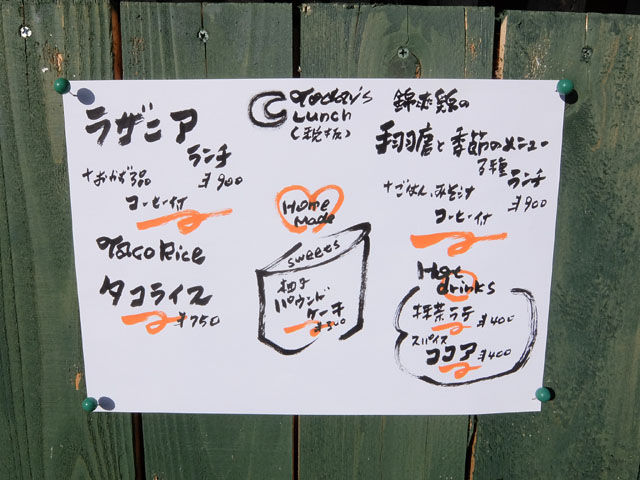 Today's
Lunch
(税抜)
ラザニア
ランチ
+おかず3品 ¥900
コーヒー付
Taco Rice
タコライス
¥750
Home
Made
sweets
柚子
パウンド
ケーキ
¥300
錦爽鶏の
と季節のメニュー
3種
ランチ
+ごはん、みそ汁 ¥900
コーヒー付
Hot
drinks
抹茶ラテ ¥400
スパイス
ココア ¥400